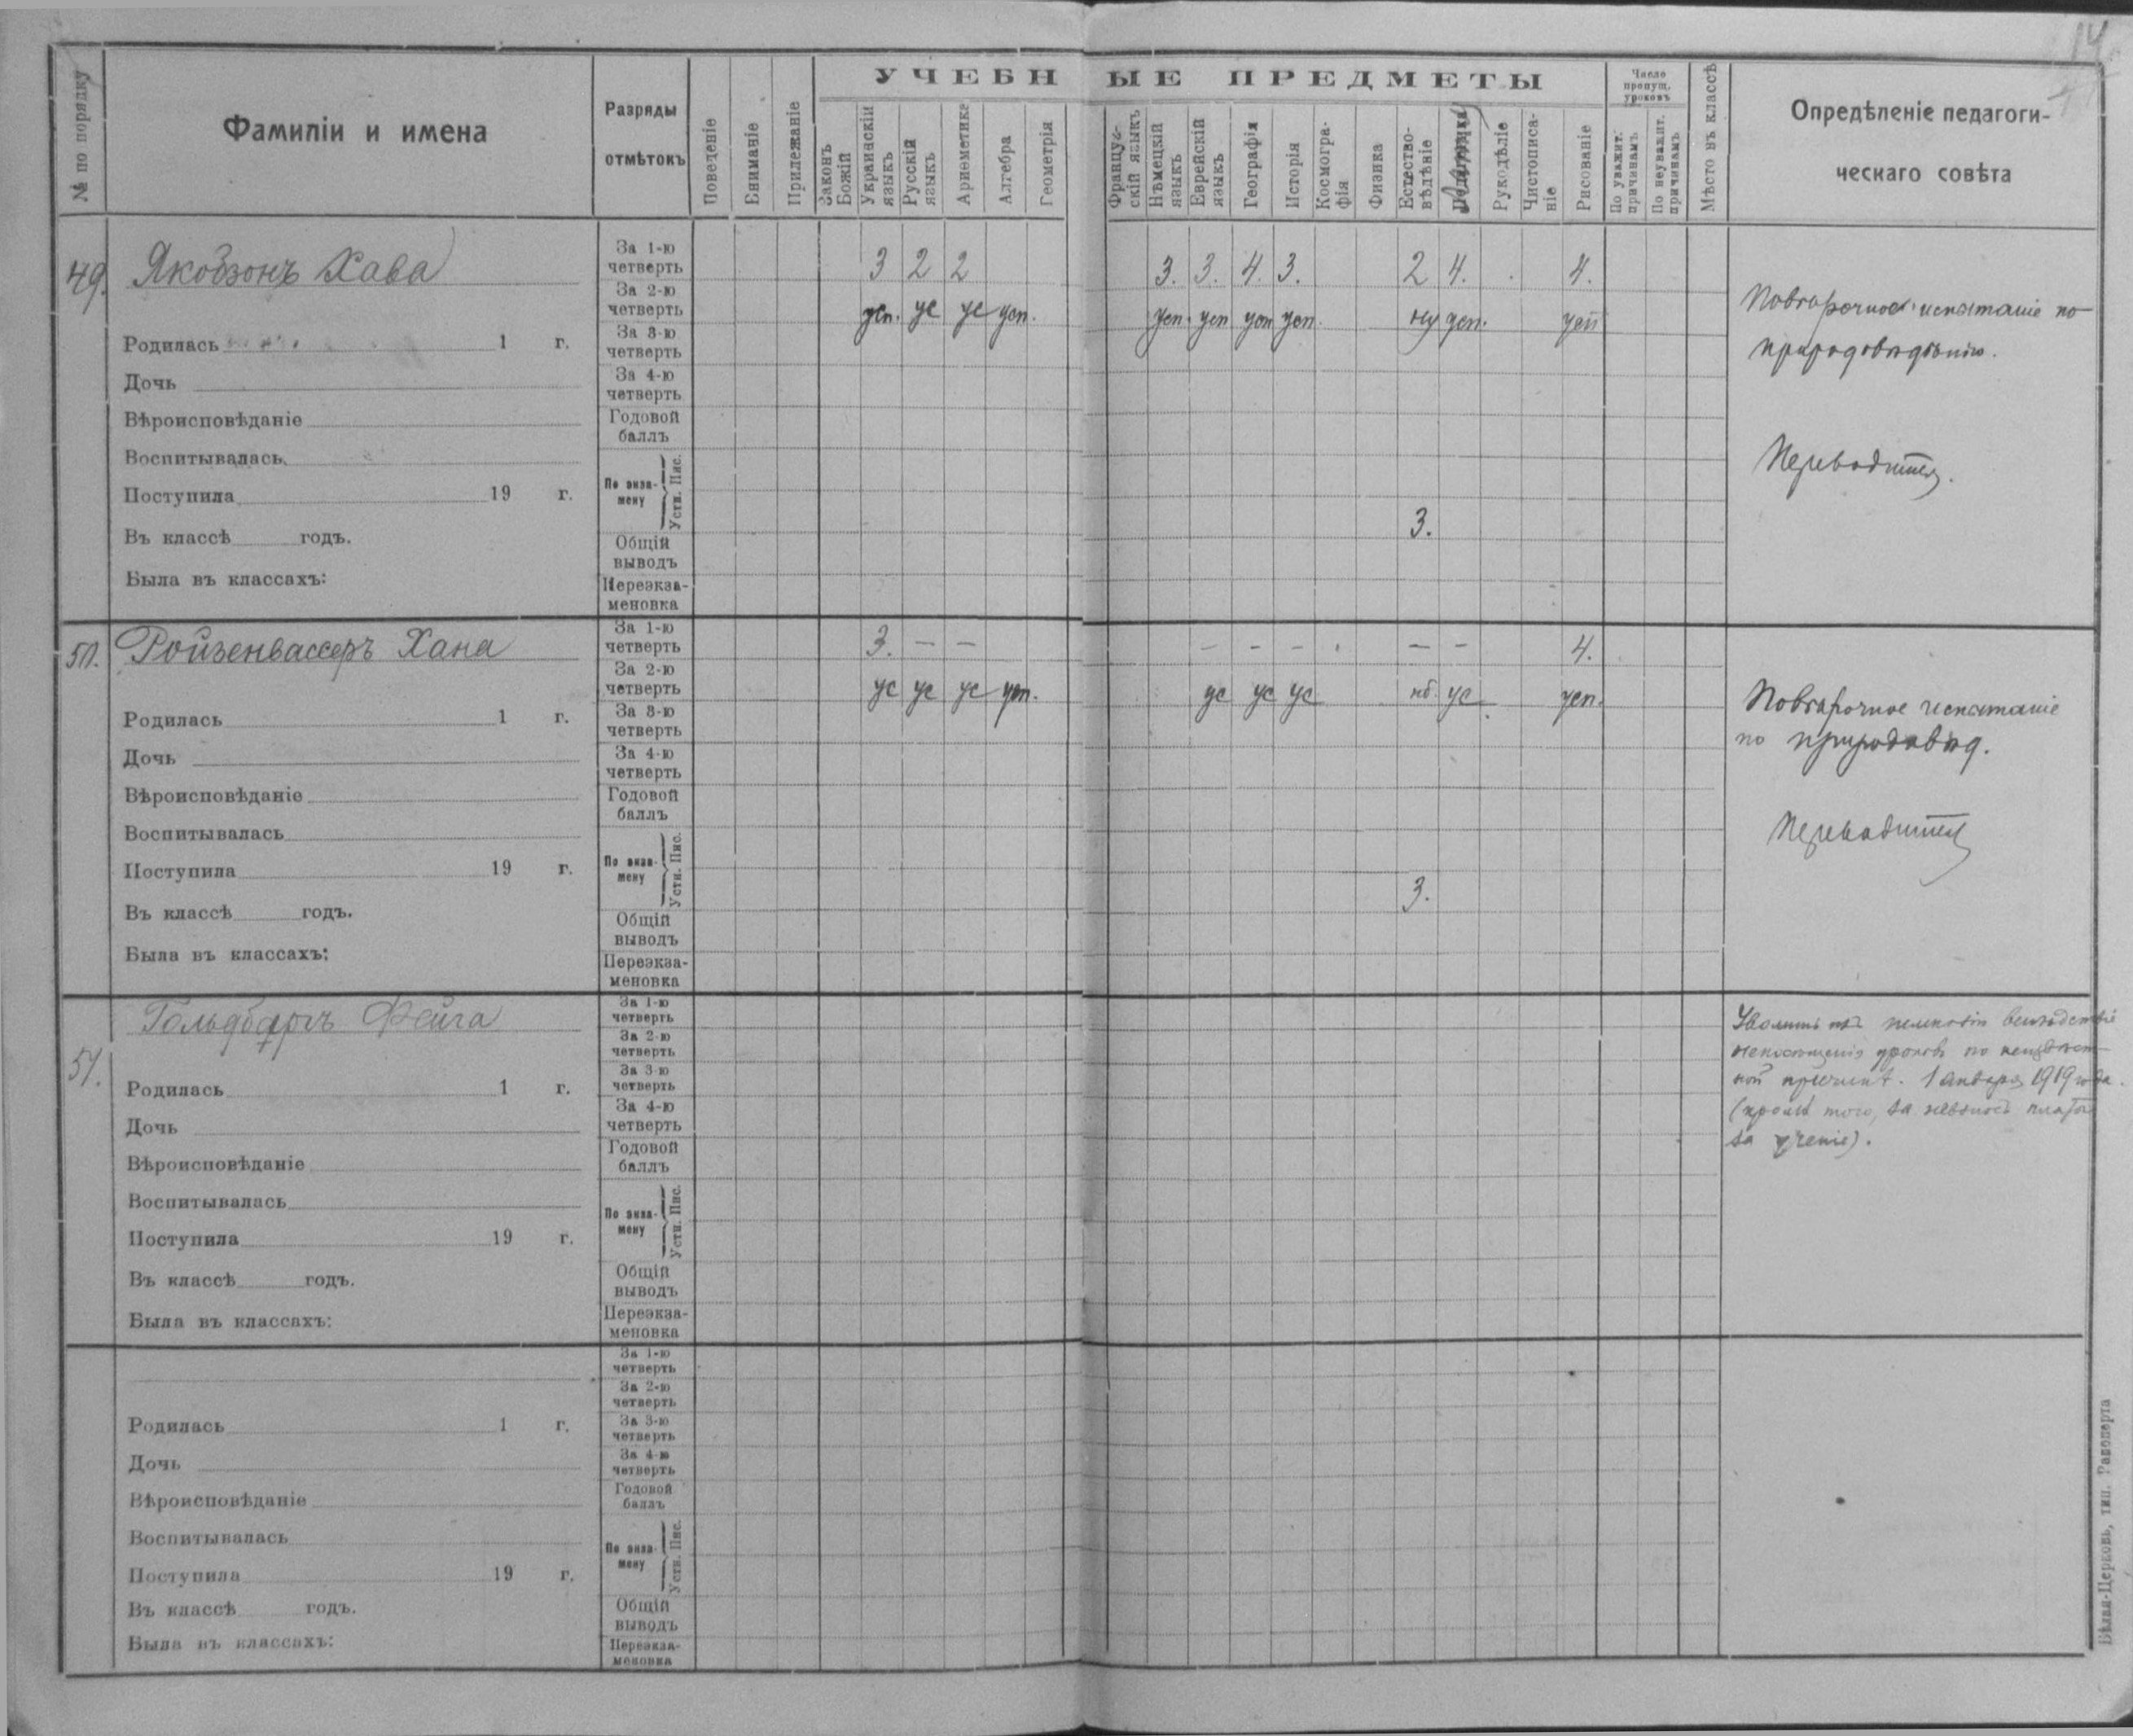 14
УЧЕБНЫЕ ПРЕДМЕТЫ
№ по порядку
Фамиліи и имена
Разряды
отмѣтокъ
Поведеніе
Вниманіе
Прилежаніе
Законъ Божій
Украинскій языкъ
Русскій языкъ
Ариѳметика
Алгебра
Геометрія
Француз-
скій языкъ
Нѣмецкій языкъ
Еврейскій языкъ
Географія
Исторія
Космогра-
фія
Физика
Естество-
вѣдѣніе
Рукодѣліе
Чистописа-
ніе
Рисованіе
Число
пропущ.
уроковъ
По уважит. причинамъ
По неуважит. причинамъ
Мѣсто въ классѣ
Опредѣленіе педагоги-
ческаго совѣта
49. Якобзонъ Хава
Родилась 1 г.
Дочь
Вѣроисповѣданіе
Воспитывалась
Поступила 19 г.
Въ классѣ годъ.
Была въ классахъ:
За 1-ю
четверть 3 2 2 3. 3. 4. 3. 2 4. 4.
За 2-ю
четверть усп. ус ус усп. усп. усп усп усп. ну усп. усп
За 3-ю
четверть
За 4-ю
четверть
Годовой
баллъ
По экза-
мену
Устн. Пис.
3.
Общій
выводъ
Переэкза-
меновка
Повторочное испытаніе по
природовѣдѣнію.
Переводится.
50. Ройзенвассеръ Хана
Родилась 1 г.
Дочь
Вѣроисповѣданіе
Воспитывалась
Поступила 19 г.
Въ классѣ годъ.
Была въ классахъ:
За 1-ю
четверть 3. — — — - — - — — 4.
За 2-ю
четверть ус ус ус усп. ус ус ус нб. ус. усп.
За 3-ю
четверть
За 4-ю
четверть
Годовой
баллъ
По экза-
мену
Устн. Пис.
3.
Общій
выводъ
Переэкза-
меновка
Повторочное испытаніе
по природовѣд.
Переводится
51. Гольдбергъ Фейга
Родилась 1 г.
Дочь
Вѣроисповѣданіе
Воспитывалась
Поступила 19 г.
Въ классѣ годъ.
Была въ классахъ:
За 1-ю
четверть
За 2-ю
четверть
За 3-ю
четверть
За 4-ю
четверть
Годовой
баллъ
По экза-
мену
Устн. Пис.
Общій
выводъ
Переэкза-
меновка
Уволить изъ гимназіи вслѣдствіе
непосѣщенія уроковъ по неизвѣст-
ной причинѣ. 1 января 1919 года.
(кромѣ того, за невзносъ платы
за ученіе).
Родилась 1 г.
Дочь
Вѣроисповѣданіе
Воспитывалась
Поступила 19 г.
Въ классѣ годъ.
Была въ классахъ:
За 1-ю
четверть
За 2-ю
четверть
За 3-ю
четверть
За 4-ю
четверть
Годовой
баллъ
По экза-
мену
Устн. Пис.
Общій
выводъ
Переэкза-
меновка
Бѣлая-Церковь, тип. Рапопорта